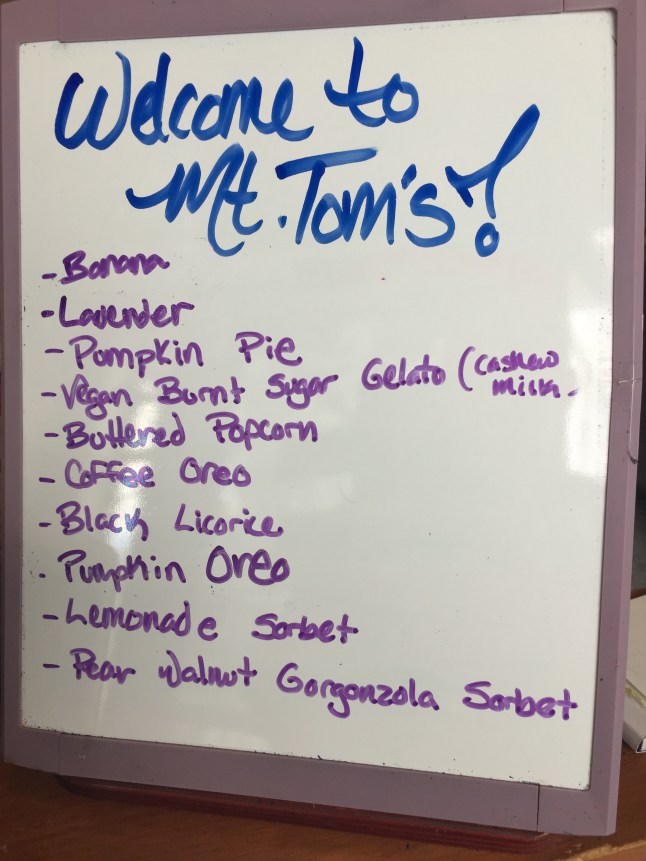 Welcome to
Mt. Tom's!
- Banana
- Lavender
- Pumpkin Pie
- Vegan Burnt Sugar Gelato (cashew
milk.
- Buttered Popcorn
- Coffee Oreo
- Black Licorice
. Pumpkin Oreo
- Lemonade Sorbet
- Pear Walnut Gorgonzola Sorbet